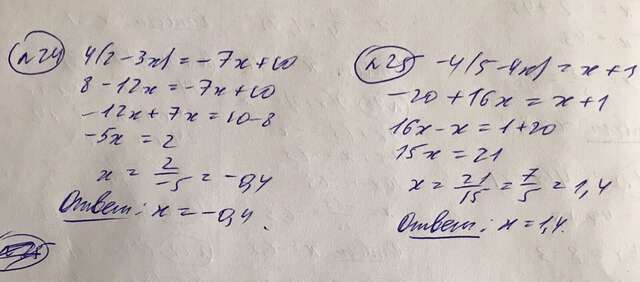 №24
4(2-3x)=-7x+10
8-12x=-7x+10
-12x+7x=10-8
-5x=2
x=2/-5=-0,4
Ответ: x=-0,4.
№25
-4(5-4x)=x+1
-20+16x=x+1
16x-x=1+20
15x=21
x=21/15=7/5=1,4
Ответ: x=1,4.